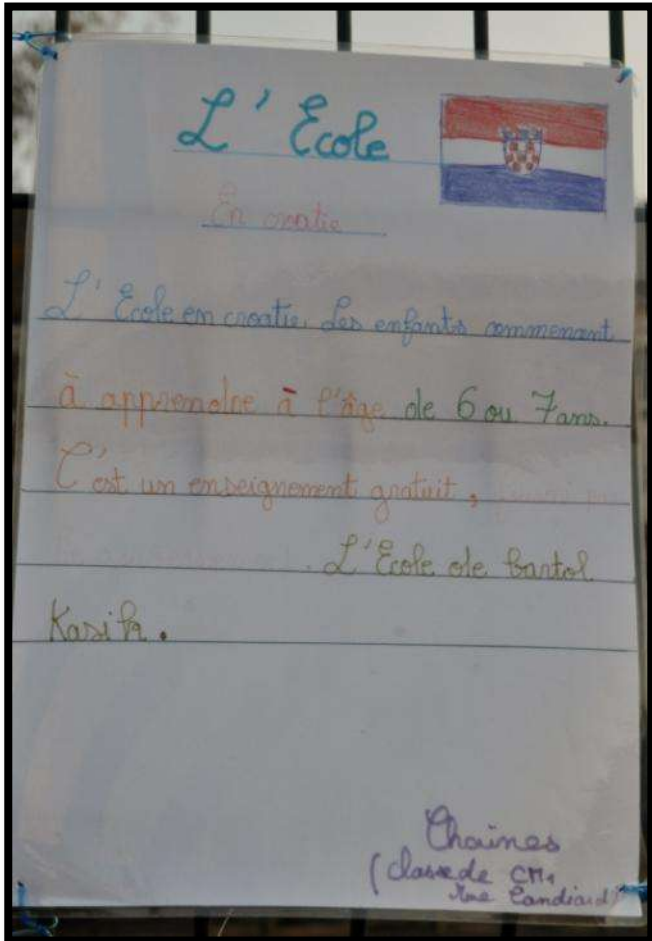 L' Ecole
En croatie
L' Ecole en croatie. Les enfants commenant
à apprendre à l'âge de 6 ou 7 ans.
C'est un enseignement gratuit,
L'Ecole de bartol
Kasih.
Chaines
(classe de CM1
Mme Candiard)